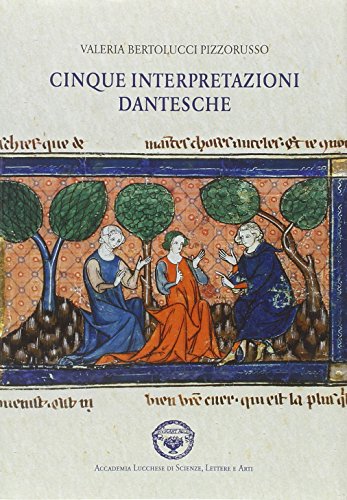 VALERIA BERTOLUCCI PIZZORUSSO
CINQUE INTERPRETAZIONI
DANTESCHE
que de
et ie quo
bien
cuer
qui est la plus
ACCADEMIA LUCCHESE DI SCIENZE, LETTERE E ARTI